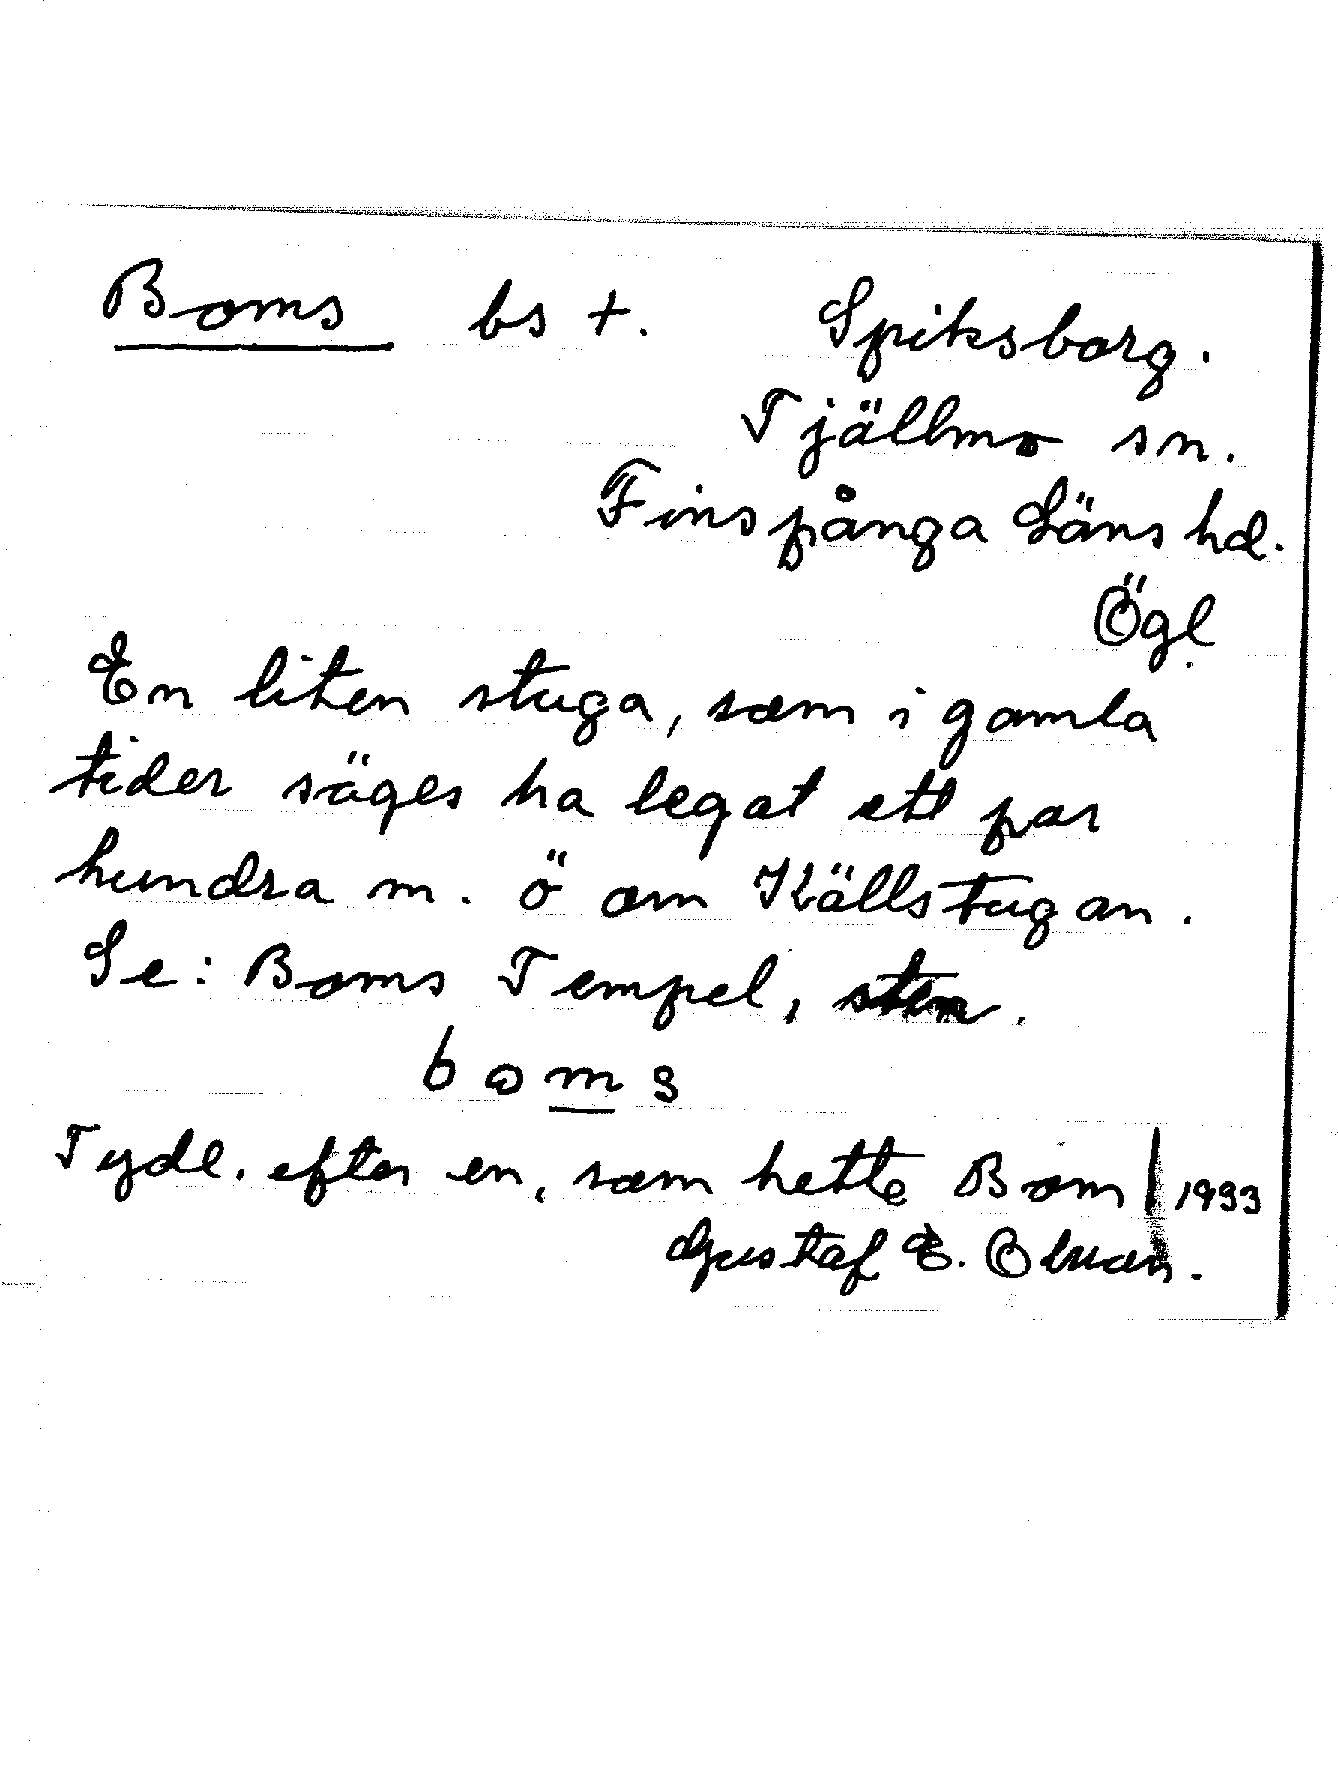 Boms bs +. Spiksborg.
Tjällmo sn.
Finspånga Läns hd.
Ögl.
En liten stuga, som i gamla
tider säges ha legat ett par
hundra m. ö om Källstugan.
Se: Boms Tempel, sten.
boms
Tydl. efter en, som hette Bom 1933
Gustaf E.